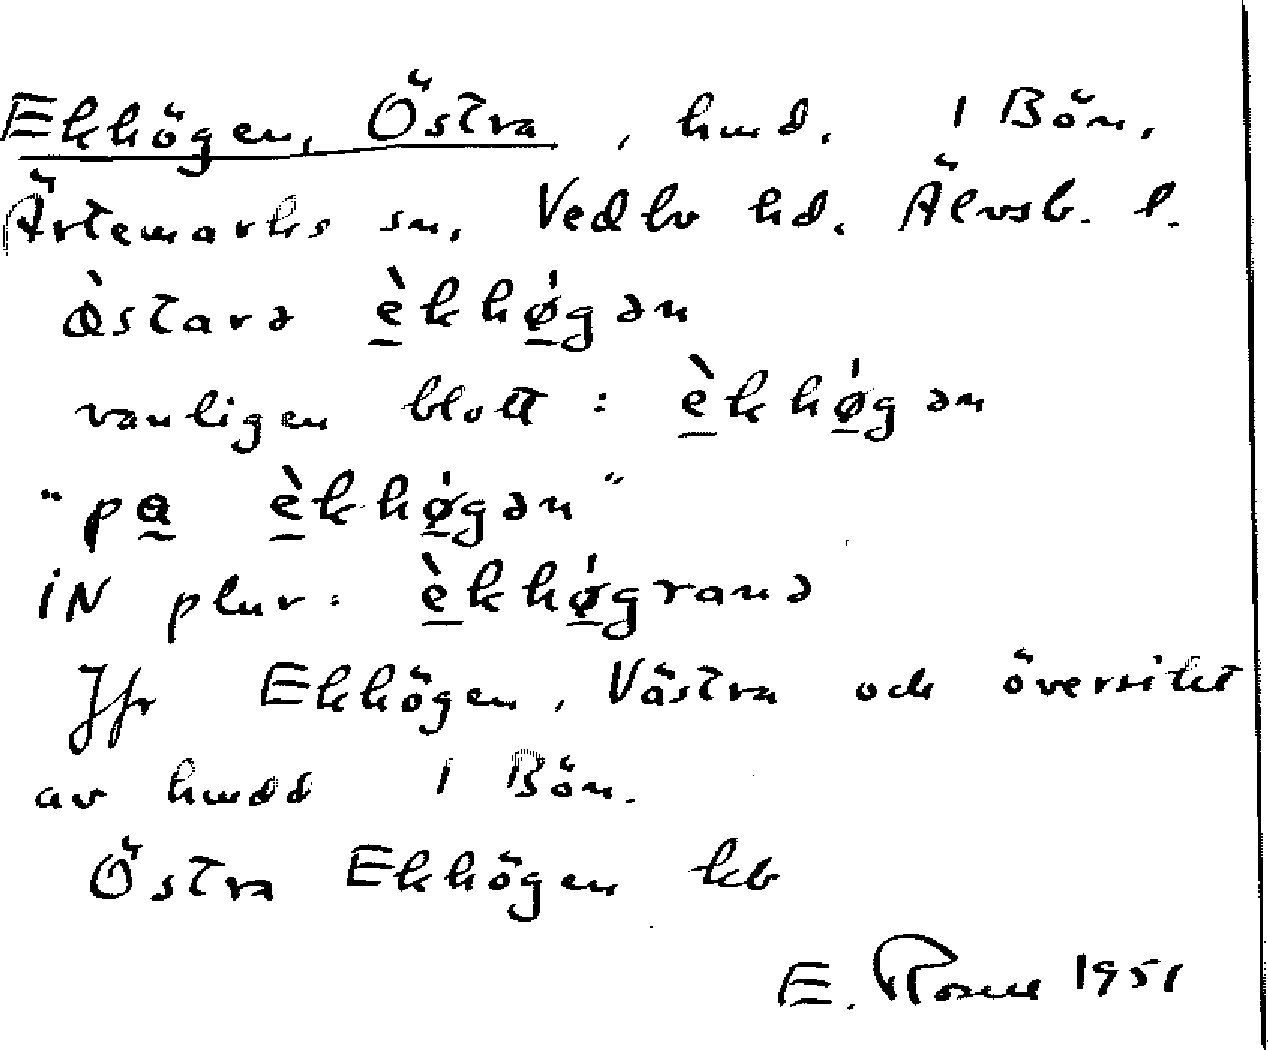 Ekhögen, Östra, hmd. 1 Bön,
Ärtemarks sn, Vedbo hd. Älvsb. l.
ø̀starə è̱khǿ̱gən
vanligen blott: è̱khǿ̱gən
"pa̱ è̱khǿ̱gən"
iN plur: è̱khǿ̱granə
Jfr Ekhögen, Västra och översikt
av hmdd 1 Bön.
Östra Ekhögen kb
E. 1951